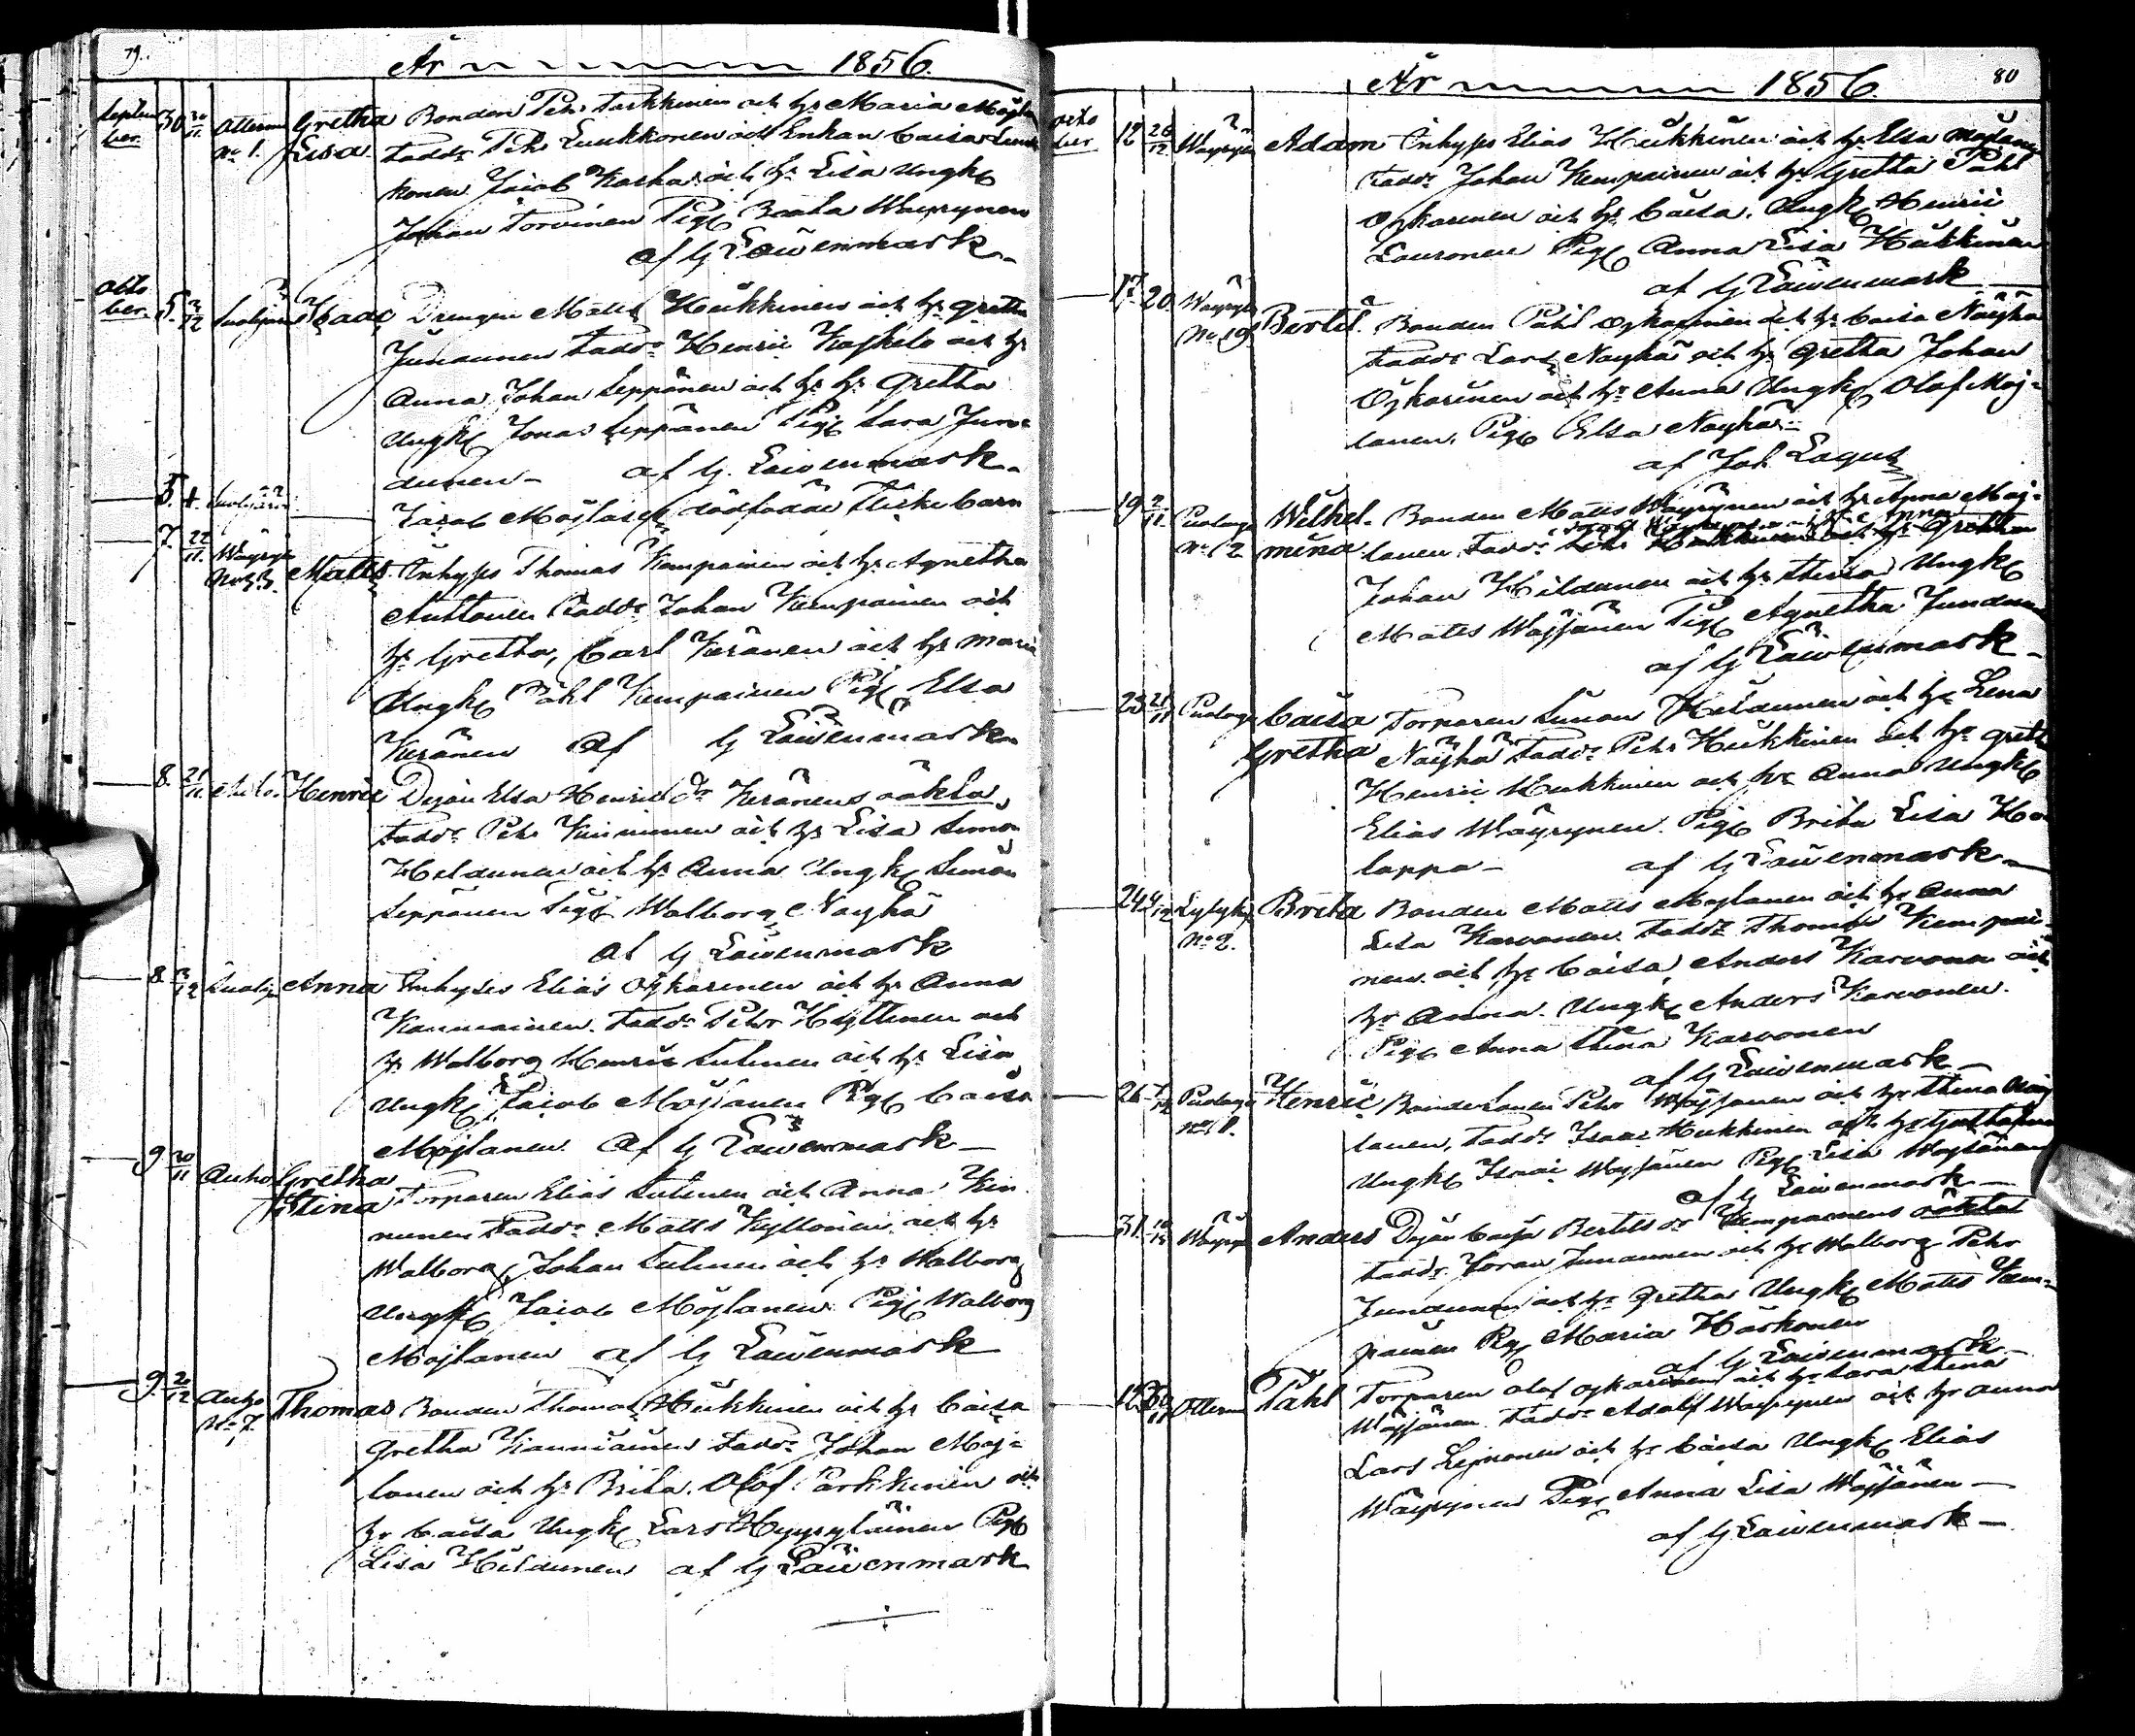 79.
År 1856.
Septem
ber. 30 30/11 Otterm No 1. Gretha Lisa. Bonden Pehr Tarkkinen och h:r Maria Möjla
Fadd:r Pehr Luukkonen och Enkan Caisa Luuk
konen Jacob Karha och h:r Lisa Ungk
Johan Torvinen Pig Beata Wäyrynen
af G Lauenmark
Octo
ber. 5. 3/12 Suolijär Isaac Drengen Matts Heikkinen och h:r Gretha
Jundunen Fadd:r Henric Kaskelo och h:r
Anna Johan Seppänen och h:r Gretha
Ungk Jonas Seppänen Pig Sara Jun
dunen af G. Lauenmark
5. 4. Suolijärvi Jacob Möjlasex dödfödde Flickebarn
7. 22/11 Wäyryl No 3. Matts Inhyses Thomas Kempainen och h:r Agnetha
Anttonen Fadd:r Johan Kempainen och
h:r Gretha, Carl Keränen och h:r Maria
Ungk Påhl Kempainen Pig Elsa
Keränen af G Lauenmark
8. 21/11 Henric Dejan Elsa Henrics dr Keränens oäkta,
Fadd:r Pehr Kinnunen och h:r Lisa Simon
Heldunen och h:r Anna Ungk Simon
Seppänen Pig Walborg Näyhä
af G Lauenmark
8. 3/12 Suolij Anna Inhyses Elias Ojkarinen och h:r Anna
Kanniainen. Fadd:r Pehr Hyttinen och
h:r Walborg Henric Tulinen och h:r Lisa
Ungk Jacob Möjlanen Pig Caisa
Mojlanen af G Lauenmark
9 30/11 Autio Gretha
Stina Torparen Elias Tulinen och Anna Kin
nunen Fadd:r Matts Kyllönen och h:r
Walborg, Johan Tulinen och h:r Walborg
Ungk Jacob Möjlanen Pig Walborg
Mojlanen af G Lauenmark
9. 20/12 Autio No 7. Thomas Bonden Thomas Heikkinen och h:r Caisa
Gretha Kanniainen Fadd:r Johan Moj=
lanen och h:r Brita. Olof Parkkinen och
h:r Caisa Ungk Lars Hyyryläinen Pig
Lisa Heldunen af G Lauenmark
80
År 1856.
Octo
ber 12 26/12 Wäyrylä Adam Inhyses Elias Heikkinen och h:r Elsa Mojlanen
Fadd:r Johan Kempainen och h:r Gretha Påhl
Ojkarinen och h:r Caisa. Ungk Henric
Lauronen Pig Anna Lisa Heikkinen
af G Lauenmark
17. 20. Wäyrylä No 19 Bertil. Bonden Påhl Ojkarinen och h:r Caisa Näyhä
Fadd:r Lars Näyhä och h:r Gretha Johan
Ojkarinen och h:r Anna Ungk Olof Moj=
lanen. Pig Elsa Näyhä
af Joh Lagus
19 2/11 Puolanga No 12 Wilhel- Bonden Matts Wäyrynen och h:r Anna Moj=
mina lanen. Fadd:r Pehr Heikkinen och h:r Gretha
Johan Heldunen och h:r Stina Ungk
Matts Wäjsänen Pig Agnetha Jundun
af G Lauenmark
23 21/11 Puolanga Caisa Torparen Simon Heldunen och h:r Lena
Gretha Näyhä Fadd:r Pehr Heikkinen och h:r Greth
Henric Heikkinen och h:r Anna Ungk
Elias Wäyrynen. Pig Brita Lisa Ho
lappa af G Lauenmark
24 4/12 Lylykylä No 2. Brita Bonden Matts Mojlanen och h:r Anna
Lisa Karvonen Fadd:r Thomas Kempai-
nen och h:r Caisa, Anders Karvonen och
h:r Anna. Ungk Anders Karvonen.
Pig Anna Stina Karvonen
af G Lauenmark
26 7/12 Puolanga No 8. Henric Bondesonen Pehr Wäjsänen och h:r Stina Moj
lanen, Fadd:r Isaac Heikkinen och h:r Gustafva
Ungk Isaac Wäjsänen Pig Lisa Wäjsänen
af G Lauenmark
31. Wäyryl Anders Dejan Caisa Bertils dr Kempainens oäkta
Fadd:r Göran Junnunen och h:r Walborg Pehr
Jundunen och h:r Gretha Ungk Matts Kem=
painen Pig Maria Härkönen
af G Lauenmark
Otterm Påhl Torparen Olof Ojkarinen och h:r Sara Stina
Wäjsänen. Fadd:r Adolf Wäyrynen och h:r Anna
Lars Leinonen och h:r Caisa Ungk Elias
Wäyrynen Pig Anna Lisa Wäjsänen
af G Lauenmark